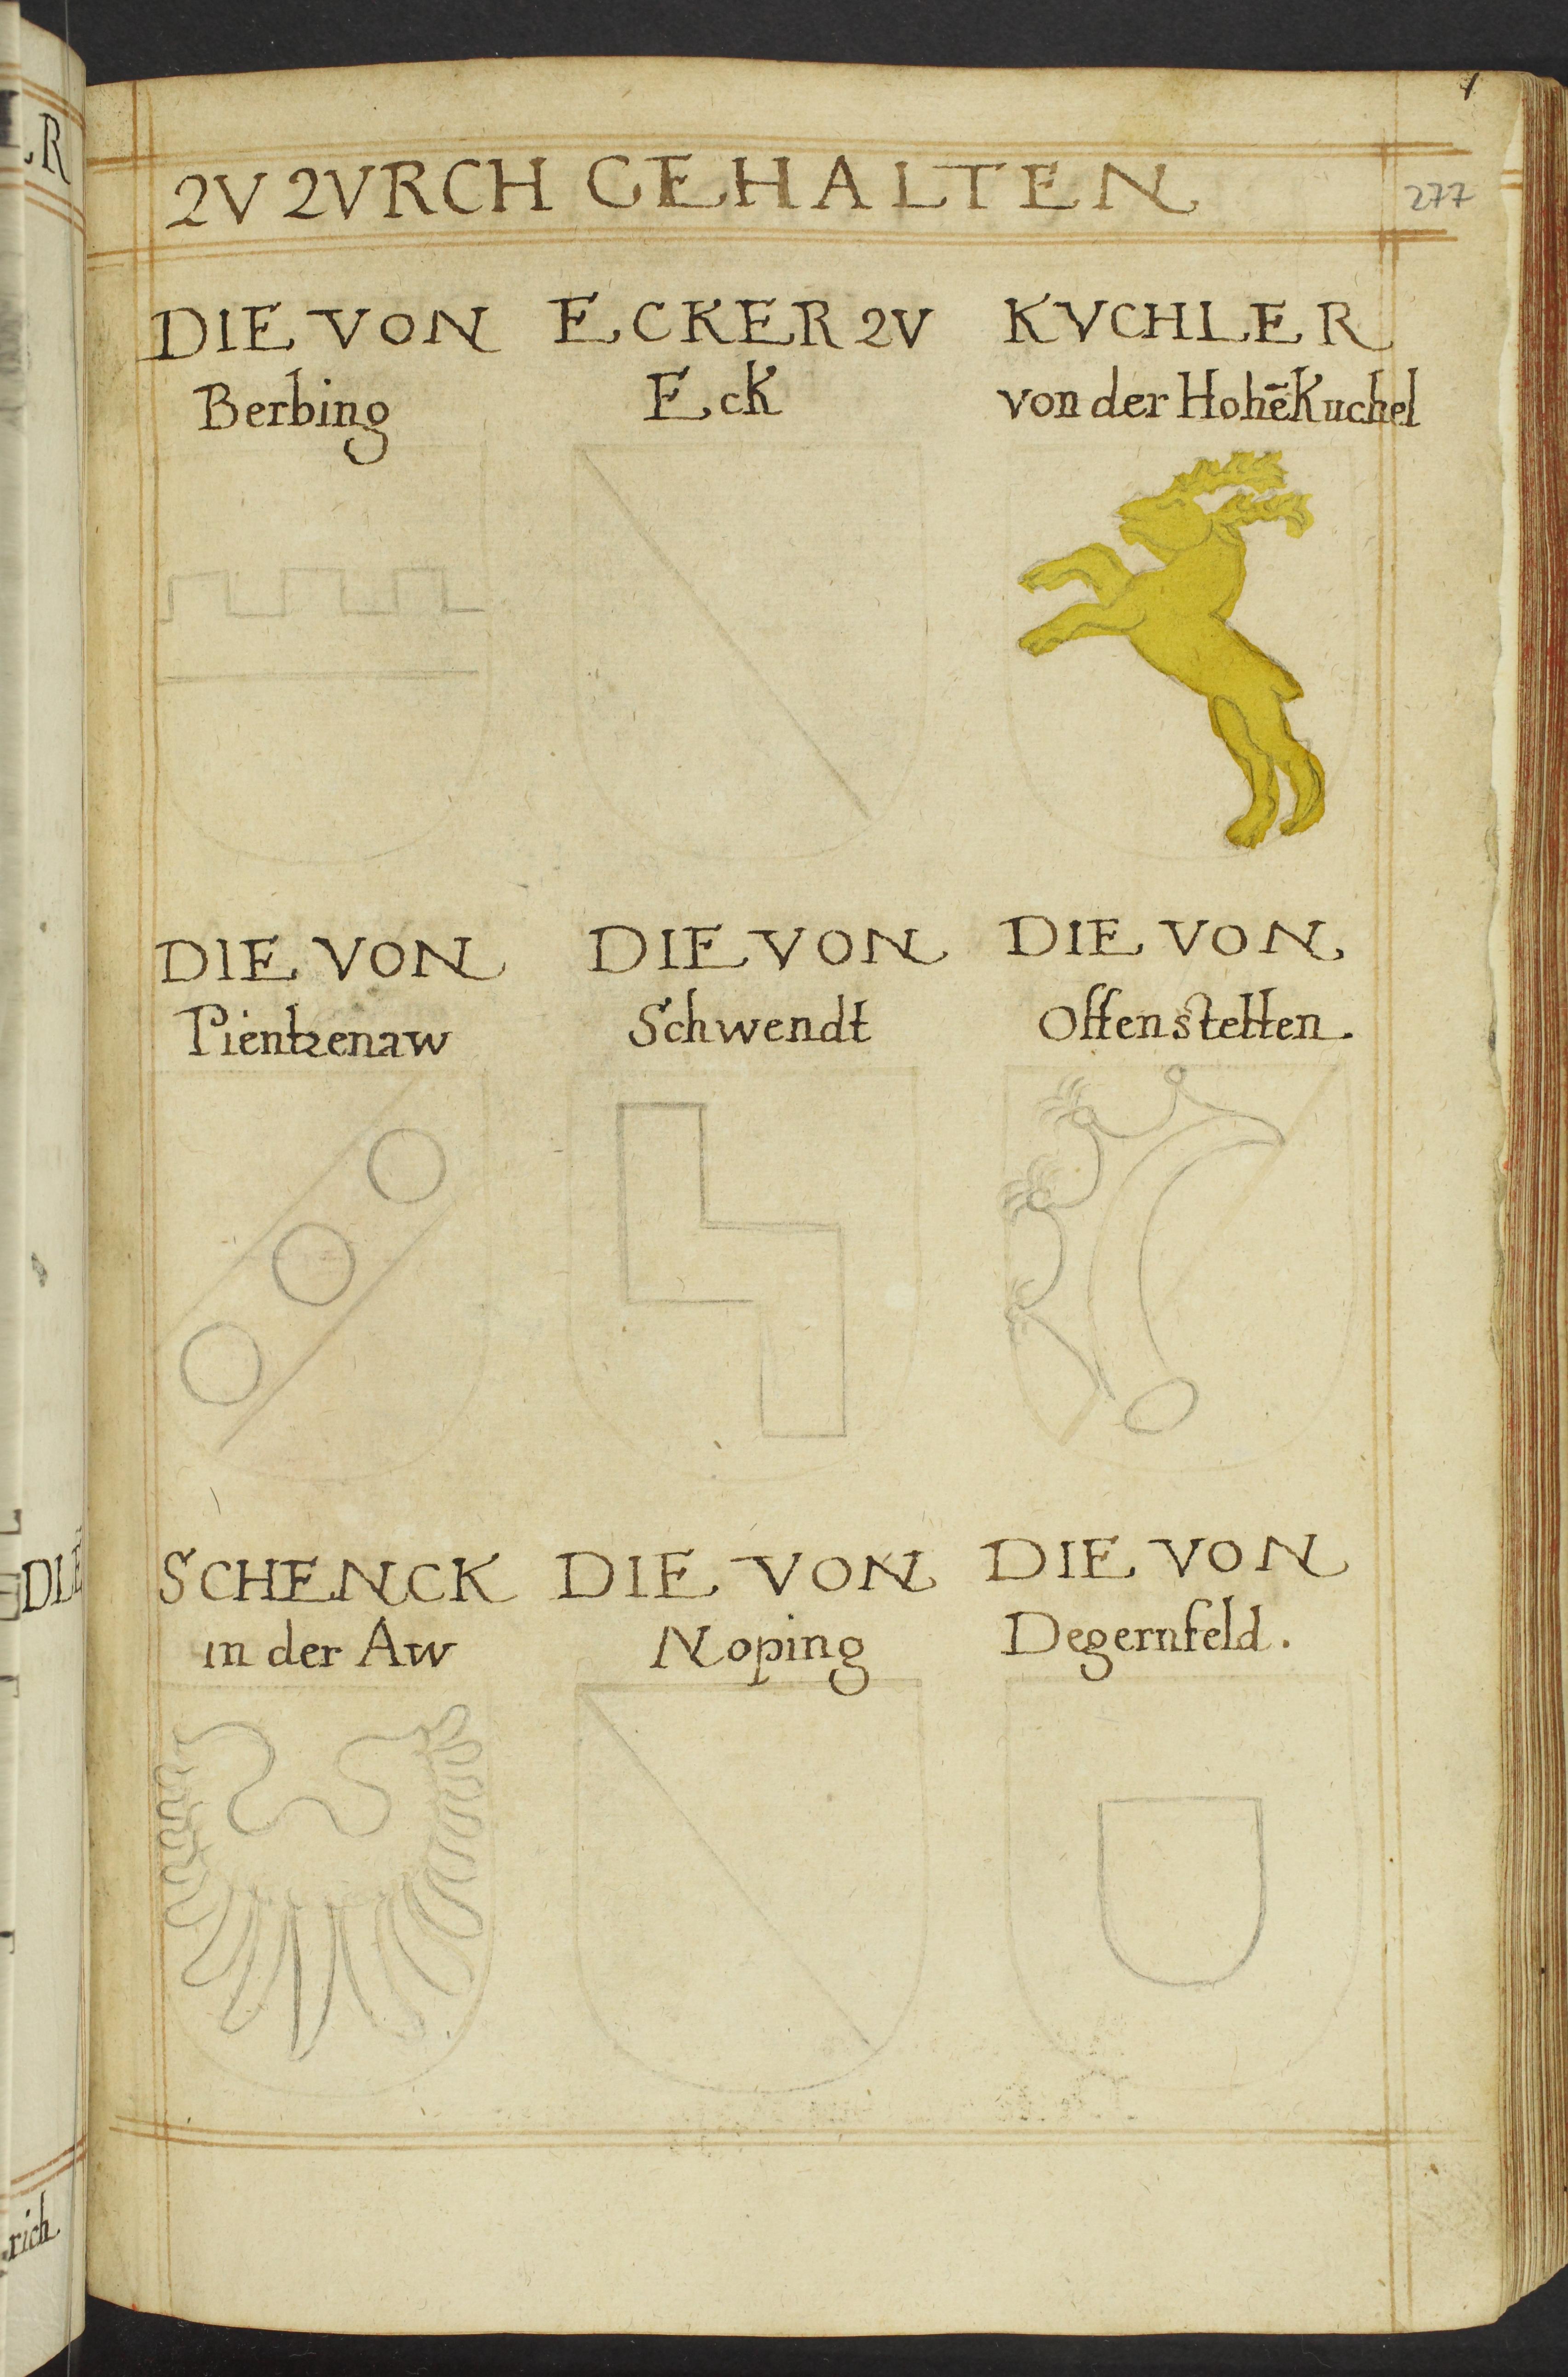 2V 2VRCH GEHALTEN
277
DIE VON
Berbing
ECKER 2V
EcK
KVCHLER
von der HohēKuchel
DIE VON
Pientzenaw
DIE VON
Schwendt
DIE VON
Offenstetten.
SCHENCK
in der Aw
DIE VON
Noping
DIE VON
Degernfeld.
R
DIE
rich